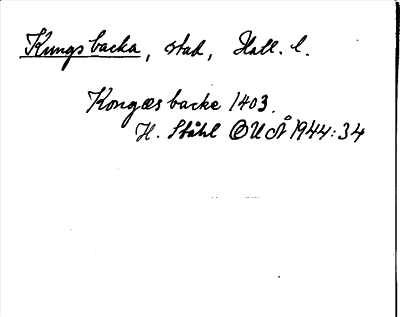 Kungsbacka, stad, Hall. l.
Kongæsbacke 1403.
H. Ståhl OUÅ 1944:34